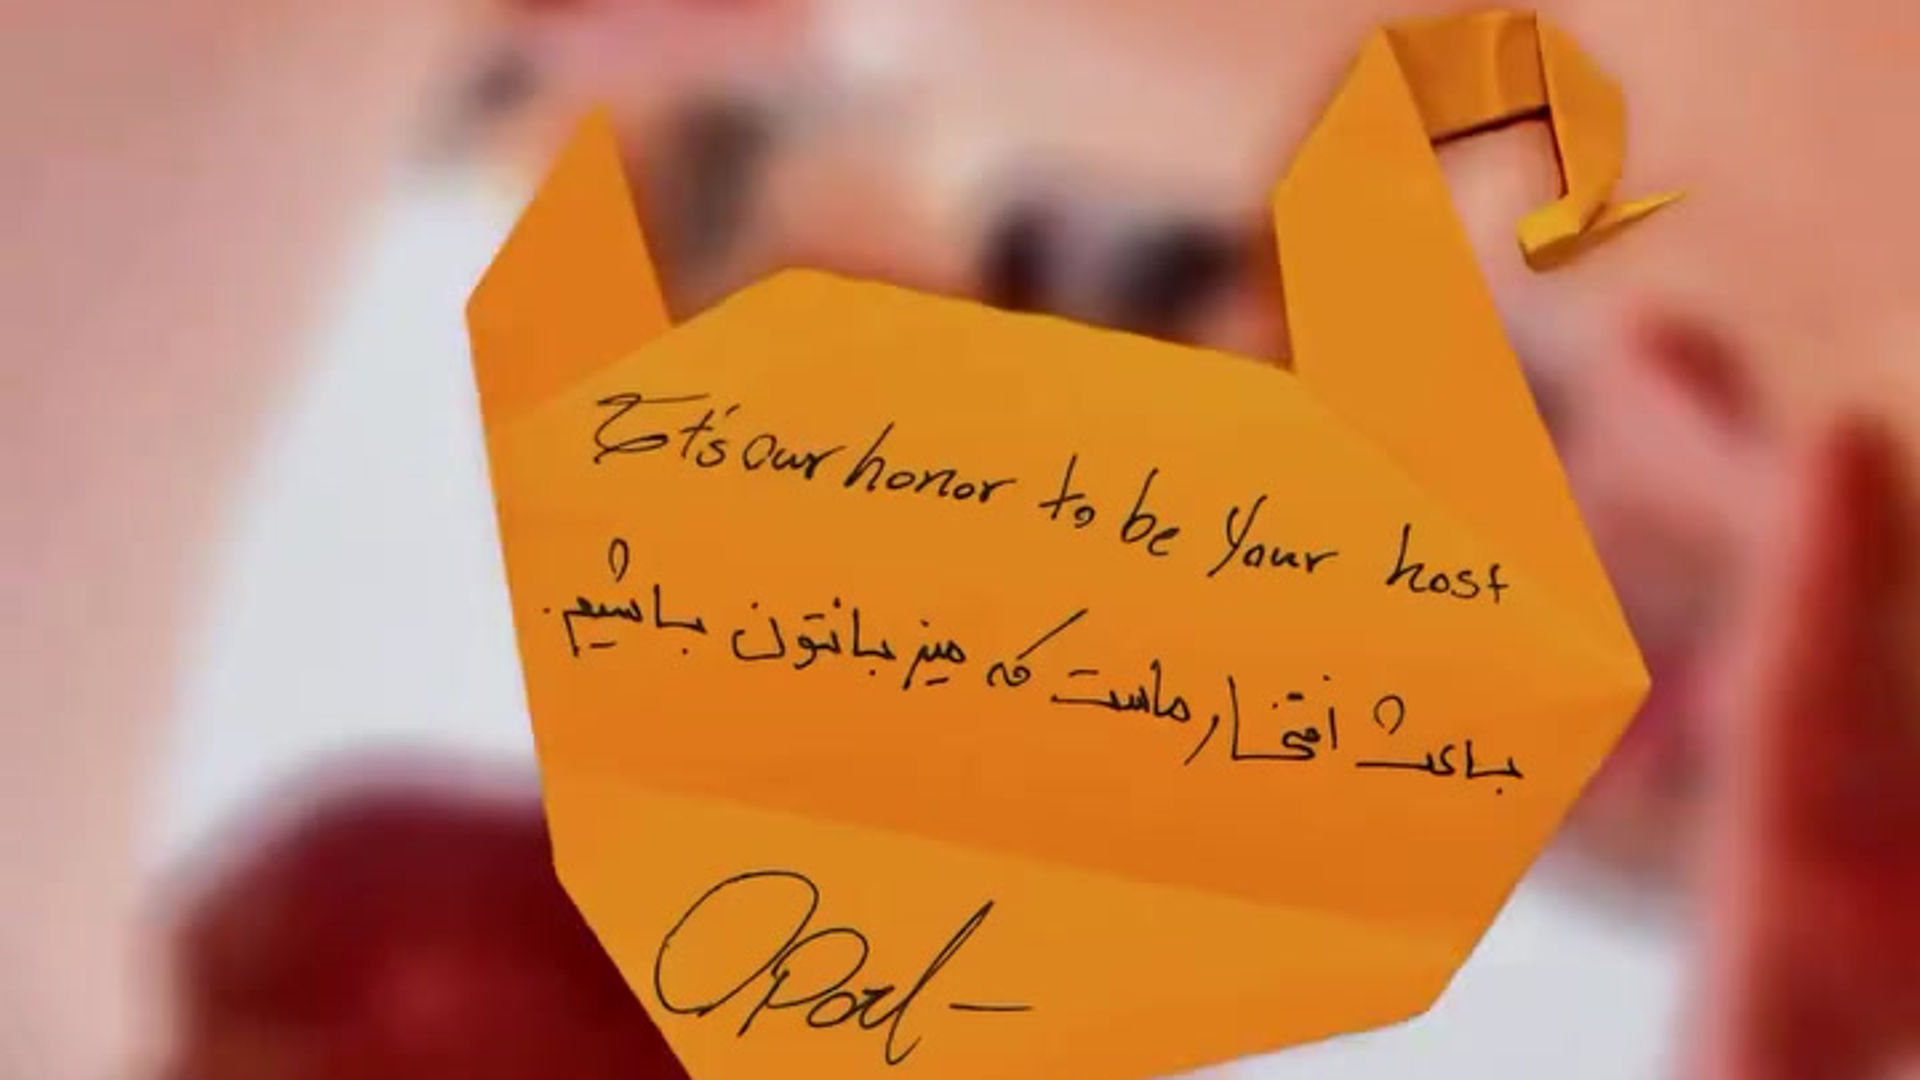 It's our honor to be your host
باعث افتخار ماست که میزبانتون باشیم.
Opal